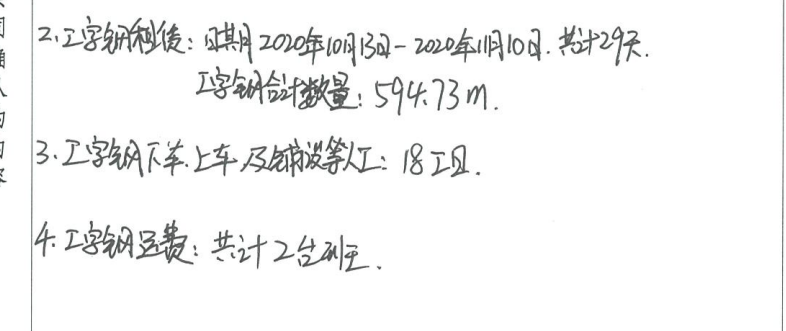 2.工字钢租赁：日期2020年10月13日-2020年11月10日.共计29天.
工字钢合计数量：594.73m.
3.工字钢下车.上车及铺设等人工：18工日.
4.工字钢运费：共计2台班.